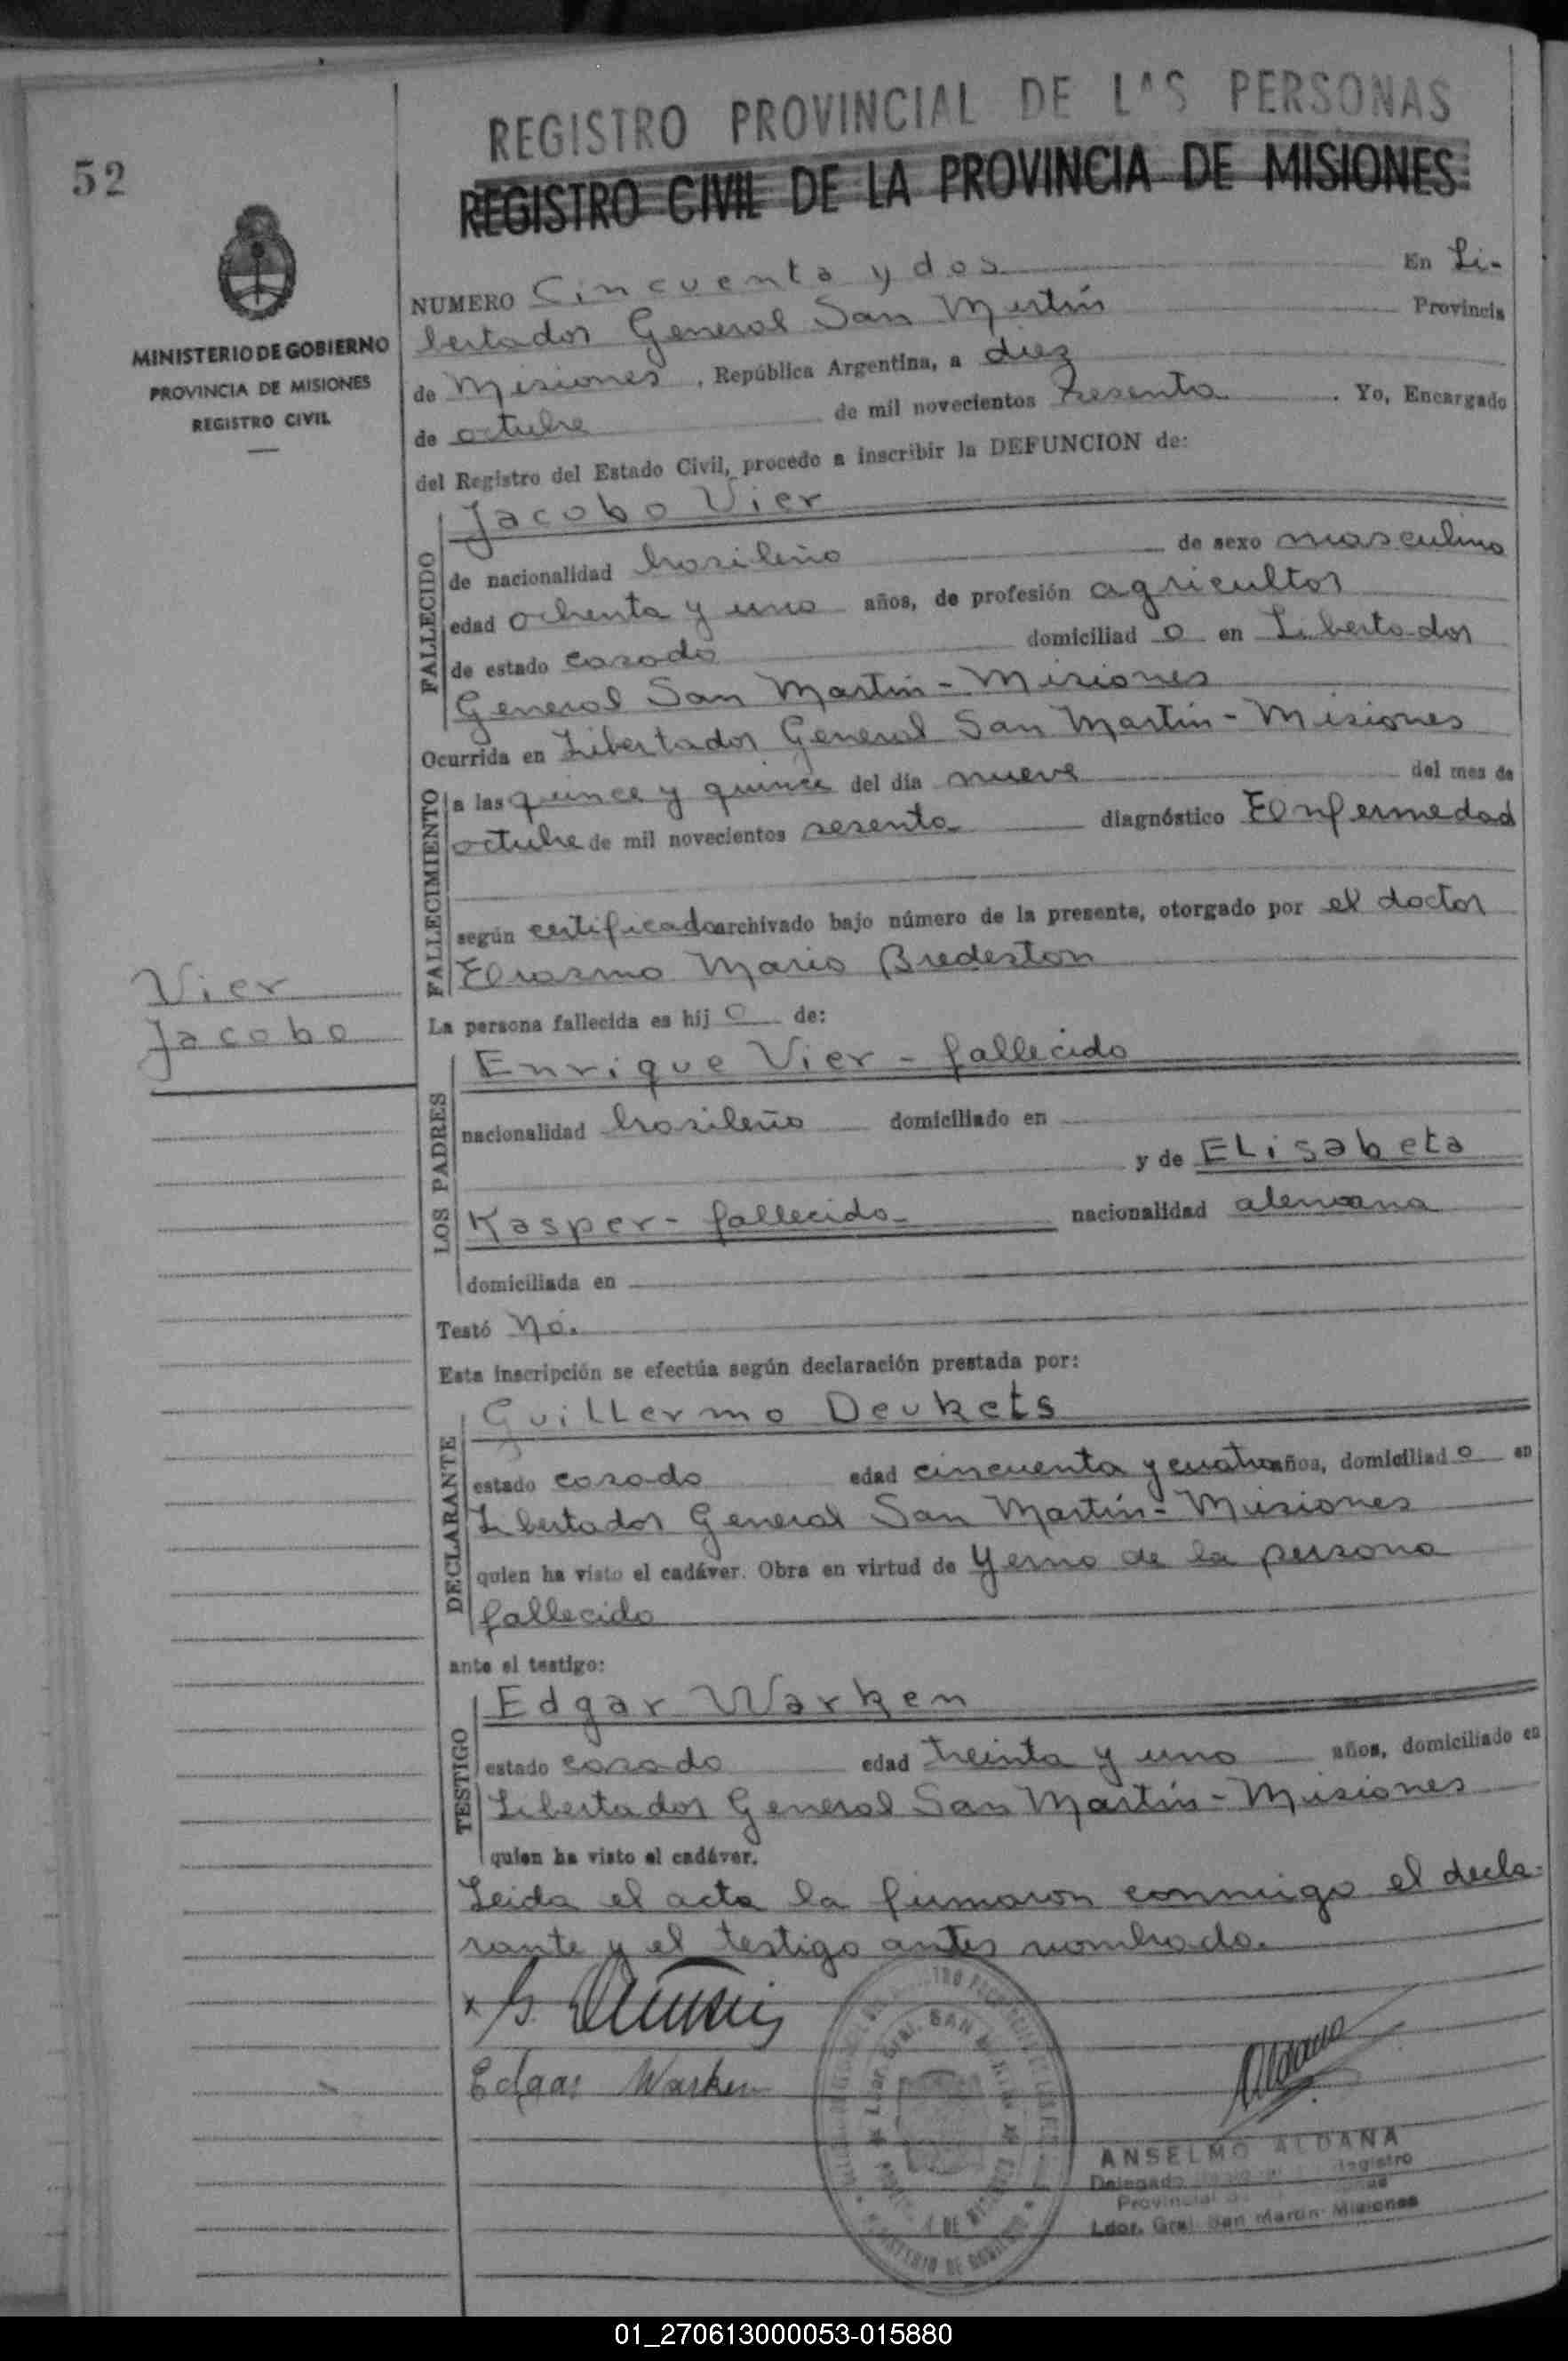 REGISTRO PROVINCIAL DE LAS PERSONAS
REGISTRO CIVIL DE LA PROVINCIA DE MISIONES
52
MINISTERIO DE GOBIERNO
PROVINCIA DE MISIONES
REGISTRO CIVIL
NUMERO Cincuenta y dos En Li-
bertador General San Martín Provincia
de Misiones, República Argentina, a diez
de octubre de mil novecientos sesenta. Yo, Encargado
del Registro del Estado Civil, procedo a inscribir la DEFUNCION de:
FALLECIDO
Jacobo Vier
de nacionalidad brasileño de sexo masculino
edad ochenta y uno años, de profesión agricultor
de estado casado domiciliad o en Libertador
General San Martín - Misiones
Ocurrida en Libertador General San Martín - Misiones
FALLECIMIENTO
a las quince y quince del día nueve del mes de
octubre de mil novecientos sesenta diagnóstico Enfermedad
según certificado archivado bajo número de la presente, otorgado por el doctor
Erasmo Mario Bredeston
Vier
Jacobo
La persona fallecida es hij o de:
LOS PADRES
Enrique Vier - fallecido
nacionalidad brasileño domiciliado en
y de ELisabeta
Kasper - fallecido - nacionalidad alemana
domiciliada en
Testó No.
Esta inscripción se efectúa según declaración prestada por:
DECLARANTE
Guillermo Deukets
estado casado edad cincuenta y cuatro años, domiciliad o en
Libertador General San Martín - Misiones
quien ha visto el cadáver. Obra en virtud de Yerno de la persona
fallecido
ante el testigo:
TESTIGO
Edgar Warken
estado casado edad treinta y uno años, domiciliado en
Libertador General San Martín - Misiones
quien ha visto el cadáver.
Leida el acta la firmaron conmigo el decla-
rante y el testigo antes nombrado.
Edgar Warken
Aldana
ANSELMO ALDANA
Delegado Registro
Provincial
Ldor. Gral. San Martín - Misiones
01_270613000053-015880